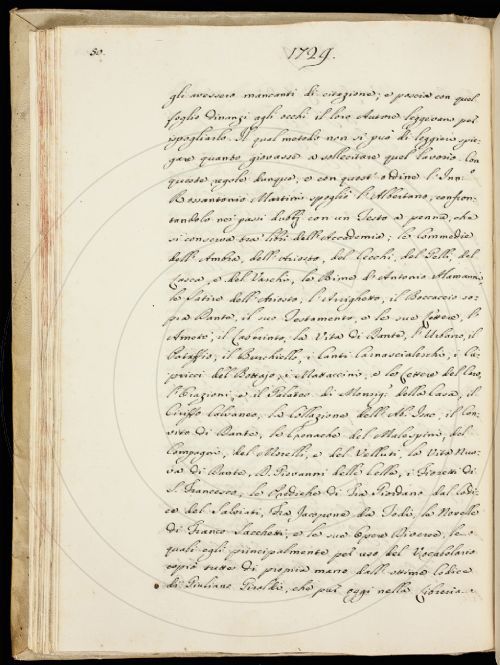 80.
1729.
gli avessero mancanti di citazione; e poscia con quel
foglio dinanzi agli occhi il loro Autore leggevano per
ispogliarlo. Il qual metodo non si può di leggieri spie-
gare quanto giovasse a sollecitare quel lavorio. Con
queste regole dunque, e con quest'ordine l'Inn.º
Rossantonio Martini spogliò l'Albertano, confron-
tandolo nei passi dubbj con un Testo a penna, che
si conserva tra' libri dell'Accademia; le Commedie
dell'Ambra, dell'Ariosto, del Cecchi, del Gelli, del
Lasca, e del Varchi, le Rime d'Antonio Alamanni,
le Satire dell'Ariosto, l'Arrighetto, il Boccaccio so-
pra Dante, il suo Testamento, e le sue Lettere, l'
Ameto, il Laberinto, la Vita di Dante, l'Urbano, il
Pataffio, il Burchiello, i Canti Carnascialeschi, i Ca-
pricci del Bottajo, i Mattaccini, e le Lettere del Caro,
l'Orazioni, e il Galateo di Monsig.r della Casa, il
Ciriffo Calvaneo, la Collazione dell'Ab. Isac, il Con-
vito di Dante, le Cronache del Malespini, del
Compagni, del Morelli, e del Velluti, la Vita Nuo-
va di Dante, D. Giovanni delle Celle, i Fioretti di
S. Francesco, le Prediche di Fra Giordano dal Codi-
ce del Salviati, Fra Jacopone da Todi, le Novelle
di Franco Sacchetti, e le sue Opere Diverse, le
quali egli principalmente per uso del Vocabolario
copiò tutte di propria mano dall'ottimo Codice
di Giuliano Giraldi, che pur oggi nella Libreria